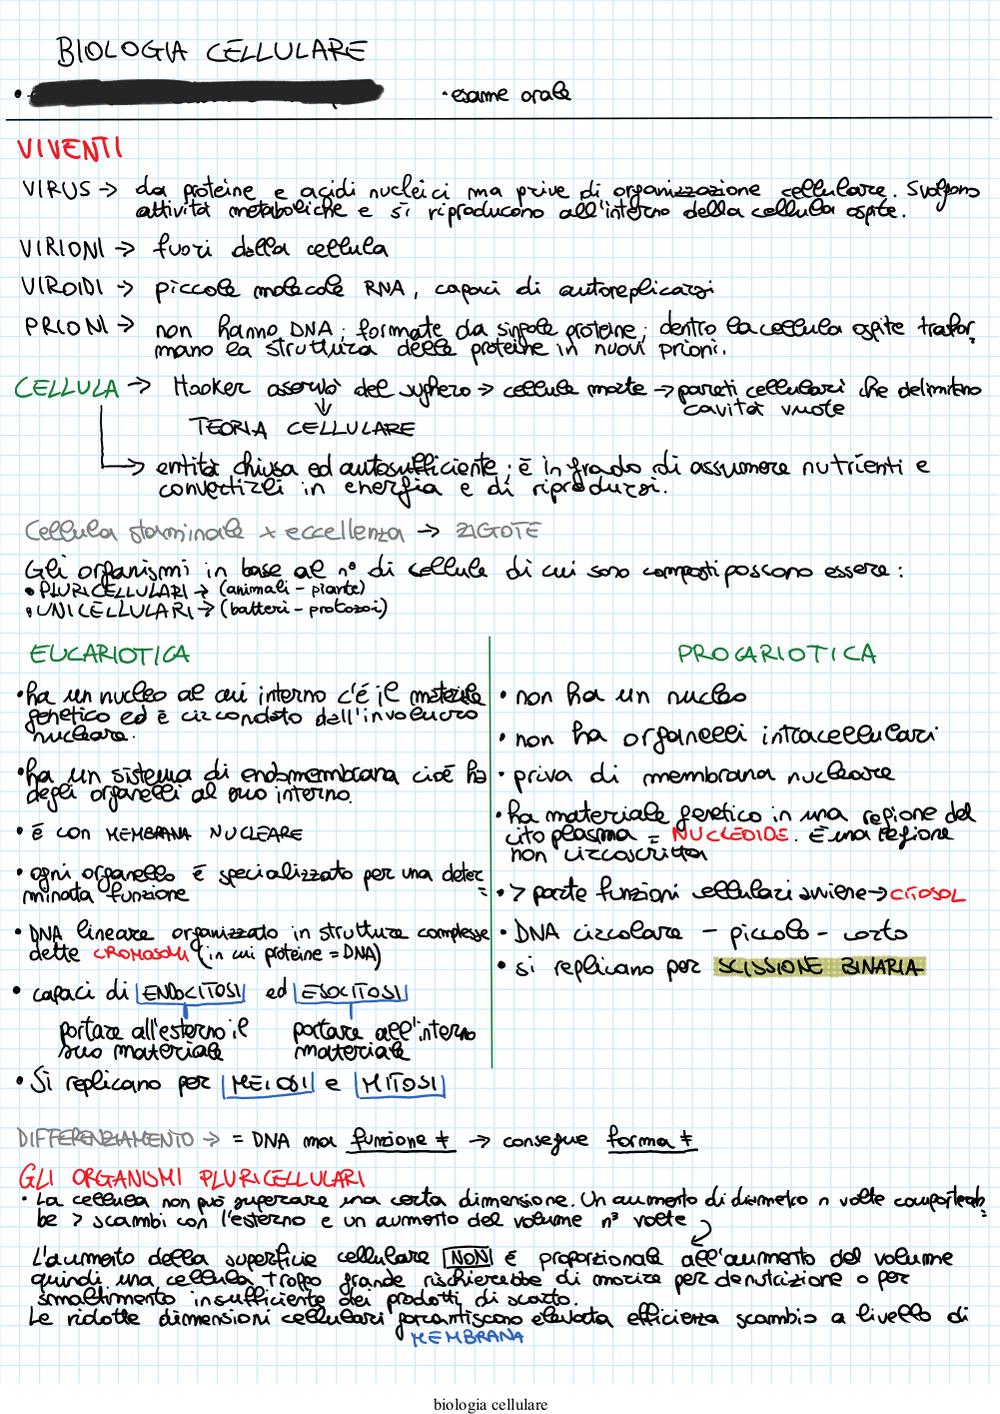 BIOLOGIA CELLULARE
• esame orale
VIVENTI
VIRUS → da proteine e acidi nucleici ma prive di organizzazione cellulare. Svolgono
attività metaboliche e si riproducono all'interno della cellula ospite.
VIRIONI → fuori della cellula
VIROIDI → piccole molecole RNA, capaci di autoreplicarsi
PRIONI → non hanno DNA; formate da singole proteine; dentro la cellula ospite trasfor
mano la struttura delle proteine in nuovi prioni.
CELLULA → Hooker osservò del sughero → cellule morte → pareti cellulari che delimitano
cavità vuote
↓
TEORIA CELLULARE
→ entità chiusa ed autosufficiente; è in grado di assumere nutrienti e
convertirli in energia e di riprodursi.
Cellula staminale x eccellenza → ZIGOTE
Gli organismi in base al n° di cellule di cui sono composti possono essere:
• PLURICELLULARI → (animali - piante)
• UNICELLULARI → (batteri - protozoi)
EUCARIOTICA
• ha un nucleo al cui interno c'è il materiale
genetico ed è circondato dall'involucro
nucleare.
• ha un sistema di endomembrana cioè ha
degli organelli al suo interno.
• è con MEMBRANA NUCLEARE
• ogni organello è specializzato per una deter
minata funzione
• DNA lineare organizzato in strutture complesse
dette CROMOSOMI (in cui proteine = DNA)
• capaci di ENDOCITOSI ed ESOCITOSI
portare all'esterno il portare all'interno
suo materiale materiale
• Si replicano per MEIOSI e MITOSI
PROCARIOTICA
• non ha un nucleo
• non ha organelli intracellulari
• priva di membrana nucleare
• ha materiale genetico in una regione del
citoplasma = NUCLEOIDE. È una regione
non circoscritta
• > parte funzioni cellulari avviene → CITOSOL
• DNA circolare - piccolo - corto
• si replicano per SCISSIONE BINARIA
DIFFERENZIAMENTO → = DNA ma funzione ≠ → consegue forma ≠
GLI ORGANISMI PLURICELLULARI
• La cellula non può superare una certa dimensione. Un aumento di diametro n volte comporterebbe
be > scambi con l'esterno e un aumento del volume n³ volte
L'aumento della superficie cellulare NON è proporzionale all'aumento del volume
quindi una cellula troppo grande rischierebbe di morire per denutrizione o per
smaltimento insufficiente dei prodotti di scarto.
Le ridotte dimensioni cellulari garantiscono elevata efficienza scambio a livello di
MEMBRANA
biologia cellulare